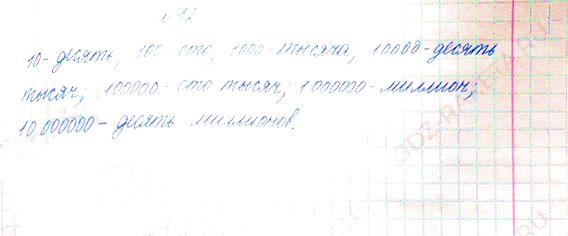 № 12
10- десять, 100-сто, 1000-тысяча; 10000-десять
тысяч; 100000-сто тысяч; 1000000-миллион;
10.000000- десять миллионов.
GDZ-RAKETA.RU